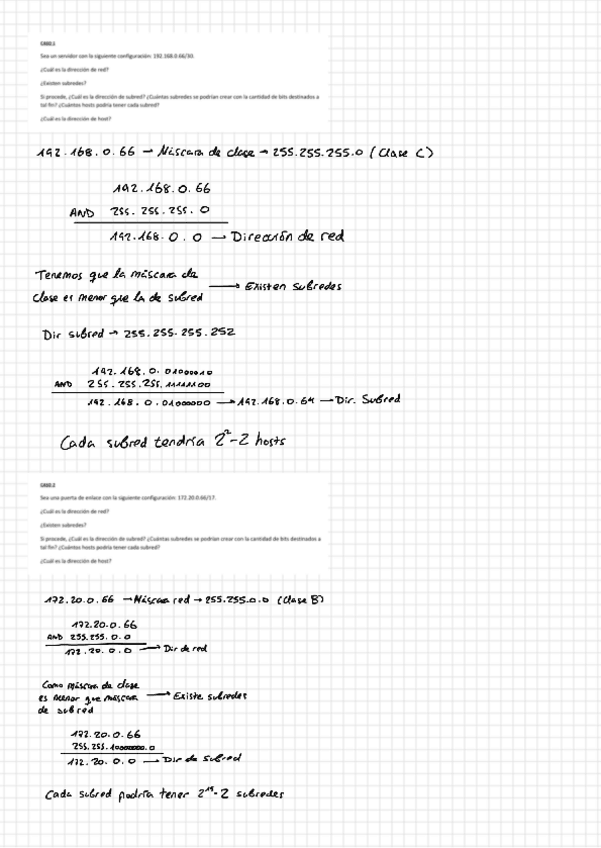 CASO 1
Sea un servidor con la siguiente configuración: 192.168.0.66/30.
¿Cuál es la dirección de red?
¿Existen subredes?
Si procede, ¿Cuál es la dirección de subred? ¿Cuántas subredes se podrían crear con la cantidad de bits destinados a
tal fin? ¿Cuántos hosts podría tener cada subred?
¿Cuál es la dirección de host?
192.168.0.66 → Máscara de clase → 255.255.255.0 (Clase C)
192.168.0.66
AND 255.255.255.0
192.168.0.0 → Dirección de red
Tenemos que la máscara de
clase es menor que la de subred → Existen subredes
Dir subred → 255.255.255.252
192.168.0.01000010
AND 255.255.255.11111100
192.168.0.01000000 → 192.168.0.64 → Dir. Subred
Cada subred tendría 2²-2 hosts
CASO 2
Sea una puerta de enlace con la siguiente configuración: 172.20.0.66/17.
¿Cuál es la dirección de red?
¿Existen subredes?
Si procede, ¿Cuál es la dirección de subred? ¿Cuántas subredes se podrían crear con la cantidad de bits destinados a
tal fin? ¿Cuántos hosts podría tener cada subred?
¿Cuál es la dirección de host?
172.20.0.66 → Máscara red → 255.255.0.0 (Clase B)
172.20.0.66
AND 255.255.0.0
172.20.0.0 → Dir de red
Como máscara de clase
es menor que máscara → Existe subredes
de subred
172.20.0.66
255.255.10000000.0
172.20.0.0 → Dir de subred
Cada subred podría tener 2¹⁵-2 subredes